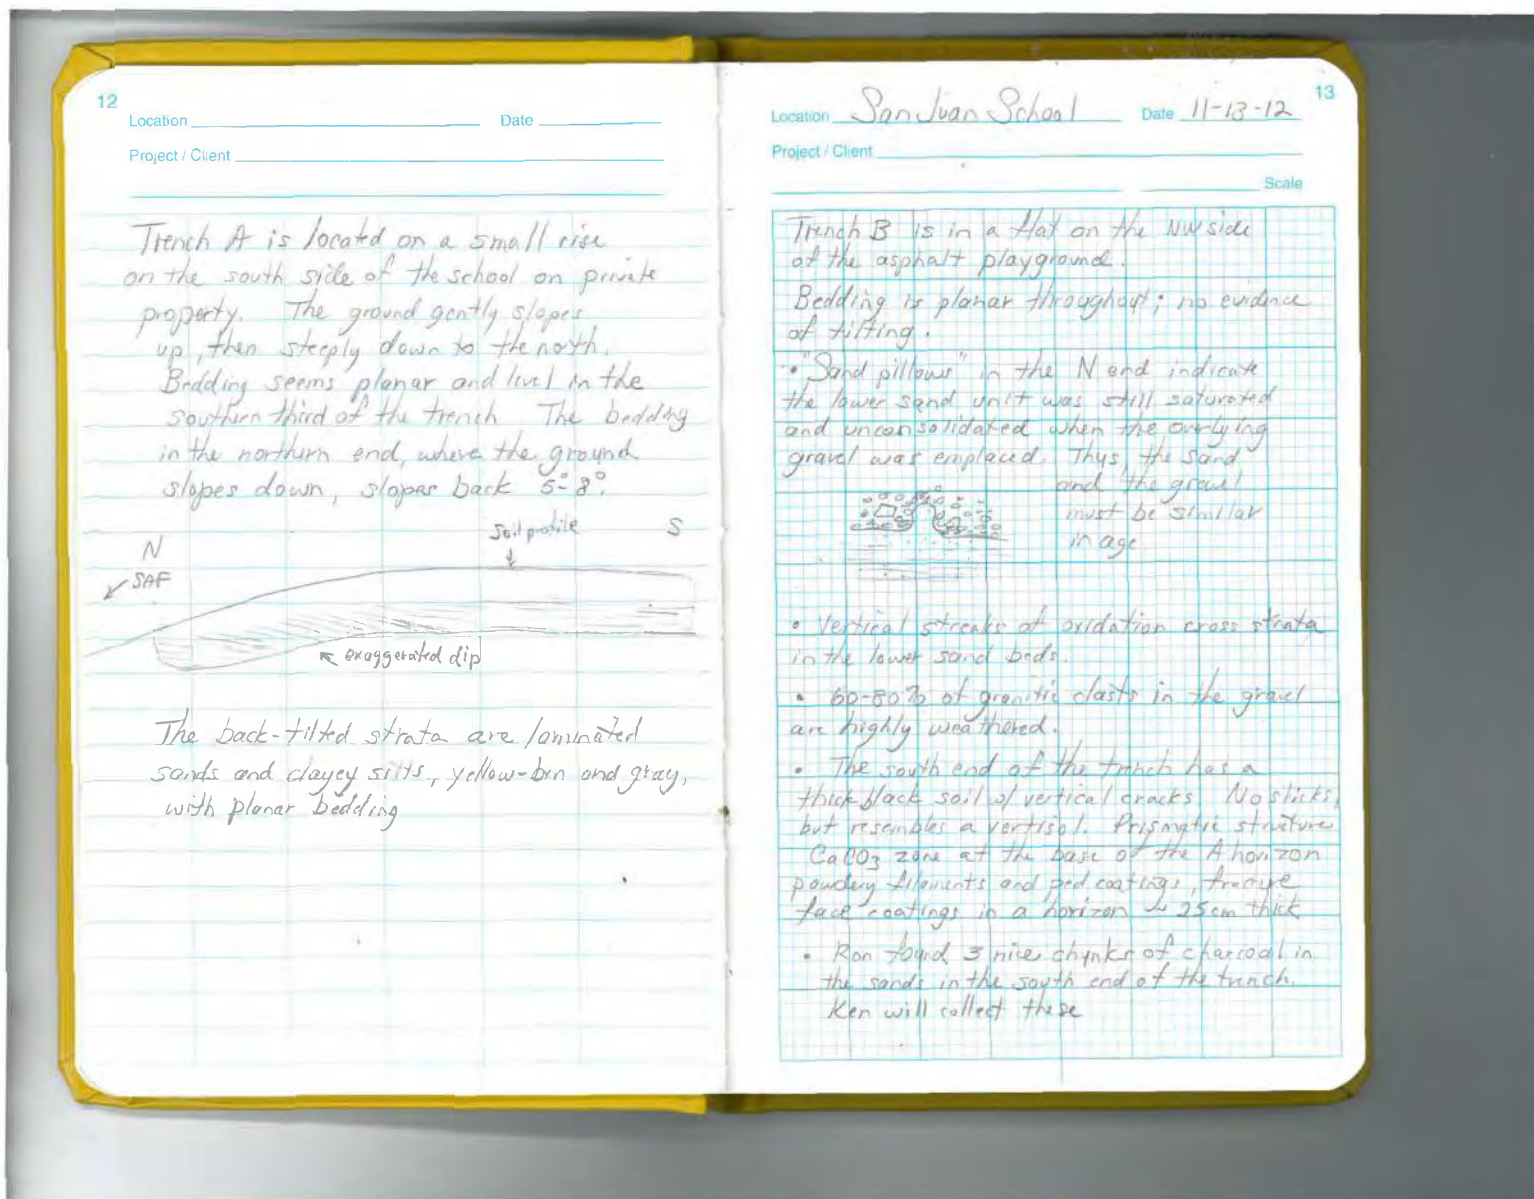 12
Location Date
Project / Client
Trench A is located on a small rise
on the south side of the school on private
property. The ground gently slopes
up, then steeply down to the north.
Bedding seems planar and level in the
southern third of the trench The bedding
in the northern end, where the ground
slopes down, slopes back 5°-8°.
Soil profile S
N
SAF
exaggerated dip
The back-tilted strata are laminated
sands and clayey silts, yellow-brn and gray,
with planar bedding
13
Location San Juan School Date 11-13-12
Project / Client
Scale
Trench B is in a flat on the NW side
of the asphalt playground.
Bedding is planar throughout; no evidence
of tilting.
• "Sand pillows" in the N end indicate
the lower sand unit was still saturated
and unconsolidated when the overlying
gravel was emplaced. Thus, the sand
and the gravel
must be similar
in age
• Vertical streaks of oxidation cross strata
in the lower sand beds.
• 60-80% of granitic clasts in the gravel
are highly weathered.
• The south end of the trench has a
thick black soil w/ vertical cracks No slicks,
but resembles a vertisol. Prismatic structure
CaCO3 zone at the base of the A horizon
powdery filaments and ped coatings, fracture
face coatings in a horizon ~ 25cm thick
• Ron found 3 nice chunks of charcoal in
the sands in the south end of the trench.
Ken will collect these